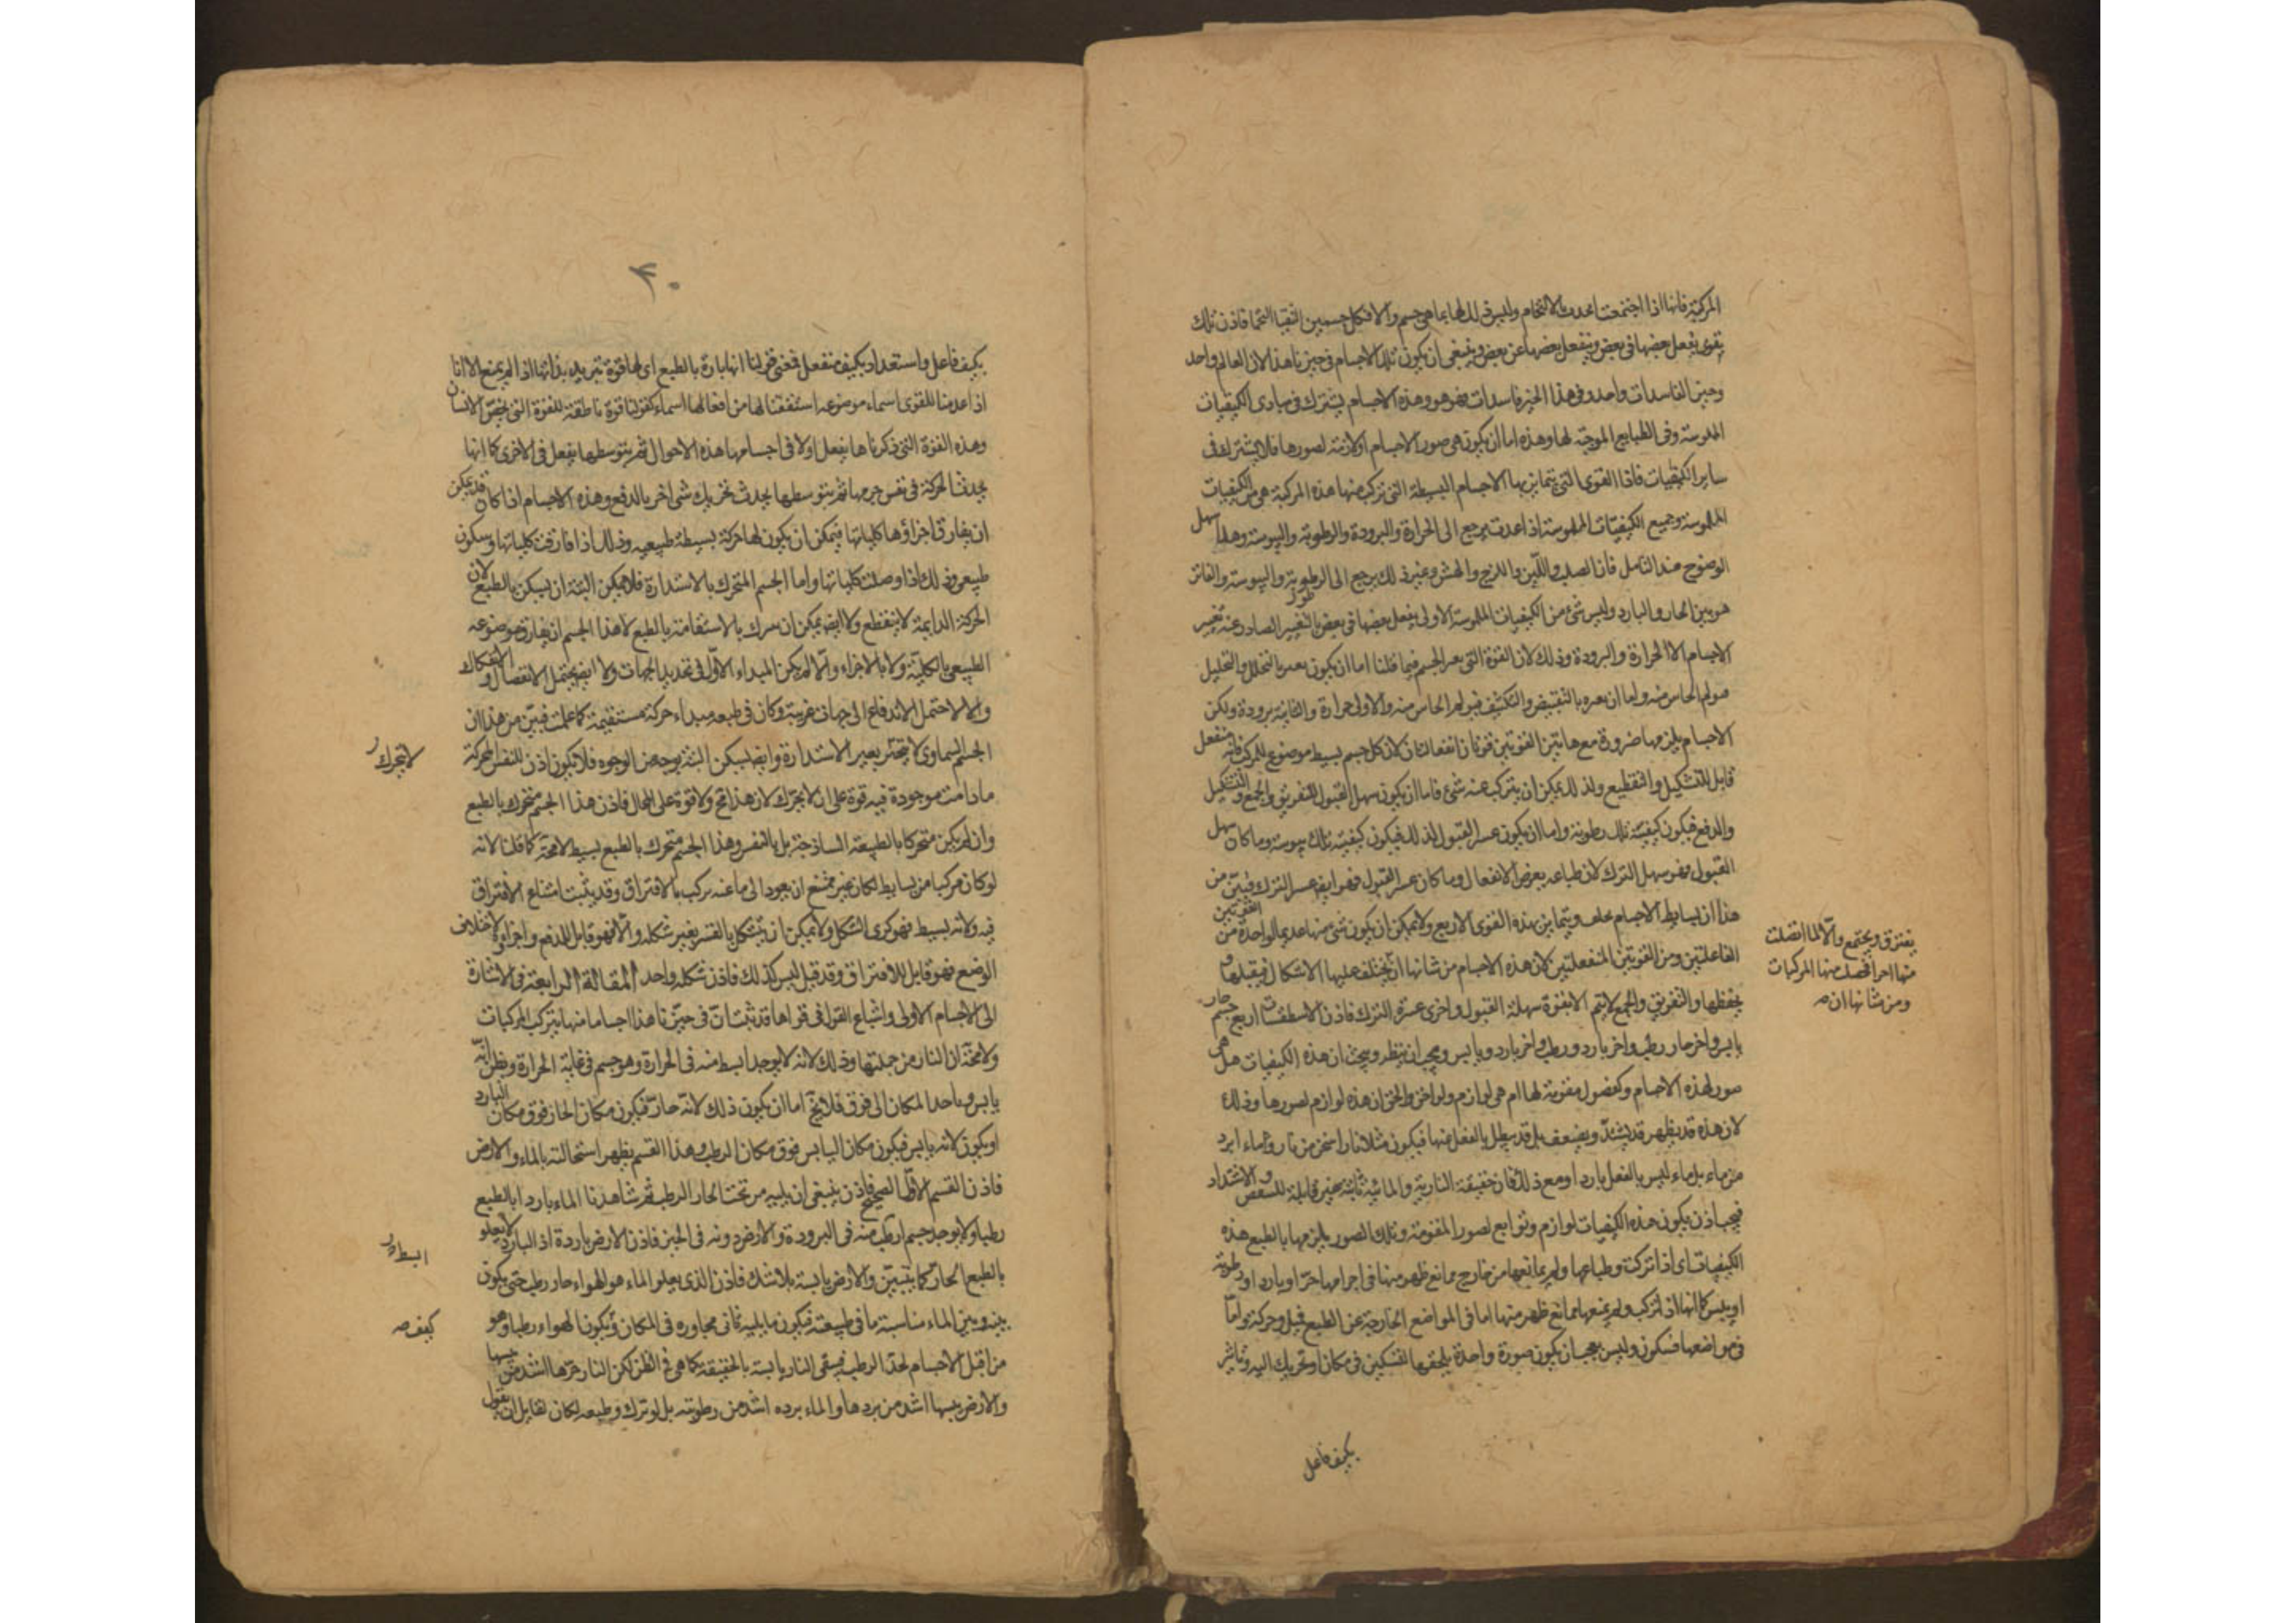 المركبة فانها اذا اجتمعت احدثت بالالتحام وليس ذلك لها بما هي جسم والا فكل جسمين التقيا التحما فاذن تلك
بقوى يفعل بعضها في بعض وينفعل بعضها عن بعض وينبغي ان يكون تلك الاجسام في حيزنا هذا لان العالم واحد
وحيز الفاسدات واحد وفي هذا الحيز فاسدات فهو هو وهذه الاجسام يشترك في مبادى الكيفيات
الملموسة وفي الطبايع الموجبة لها وهذه اما ان يكون هي صور الاجسام او لازمة لصورها فلا يشترك في
ساير الكيفيات فاذا القوى التي يتمايز بها الاجسام البسيطة التي تركبت منها هذه المركبة هي من الكيفيات
الملموسة وجميع الكيفيات الملموسة اذا عدت يرجع الى الحرارة والبرودة والرطوبة واليبوسة وهذا سهل
الوضوح عند التامل فان الصلب واللين واللزج والهش وغير ذلك يرجع الى الرطوبة واليبوسة والفاتر
هو بين الحار والبارد وليس شئ من الكيفيات الملموسة الاولى يفعل بعضها في بعض بالتغيير الصادر عنه تغيير
الاجسام الا الحرارة والبرودة وذلك لان القوة التي الجسم فيما قلنا اما ان يكون بالتخلل والتحليل
الحاس منه واما ان بالتقبيض والتكثيف فيولم الحاس منه والاولى حرارة والثانية برودة ولكن
الاجسام يلزمها ضرورة مع هاتين القوتين قوتان انفعاليتان لان كل جسم بسيط موضوع للمركب فانه منفعل
قابل للتشكيل والتقطيع ولذلك يمكن ان يتركب عنه شئ فاما ان يكون سهل القبول للتفريق والجمع والتشكيل
والدفع فيكون كيفيته تلك رطوبة واما ان يكون عسر القبول لذلك فيكون كيفيته تلك يبوسة وما كان سهل
القبول فهو سهل الترك لان طباعه بعرض الانفعال وما كان عسر القبول فهو ايضا عسر الترك فبين من
هذا ان بسايط الاجسام يختلف ويتمايز بهذه القوى الاربع ولا يمكن ان يكون شئ منها عديما لواحدة من القوتين
الفاعلتين ومن القوتين المنفعلتين لان هذه الاجسام من شانها ان يختلف عليها الاشكال فيقبلها و
يفترق ويجتمع والا لما اتصلت
منها اجزا فحصلت منها المركبات
ومن شانها ان صـ
يحفظها والتفريق والجمع لا يتم الا بقوة سهلة القبول واخرى عسرة الترك فاذن الاسطقسات اربع جسم حار
يابس واخر حار رطب واخر بارد ورطب واخر بارد ويابس ويجب ان ينظر ويبحث ان هذه الكيفيات هل هي
صور لهذه الاجسام وكفصول مقومة لها ام هي لوازم ولواحق والحق ان هذه لوازم لصورها وذلك
لان هذه قد يظهر قد يشتد ويضعف بل قد يبطل بالفعل منها فيكون مثلا نارا اسخن من نار وماء ابرد
من ماء بل ماء ليس بالفعل باردا ومع ذلك فان حقيقة النارية والمائية ثابتة غير قابلة للتنقص والاشتداد
فيجب اذن يكون هذه الكيفيات لوازم وتوابع لصور المقومة وتلك الصور يلزمها بالطبع هذه
الكيفيات اى اذا تركت وطباعها ولم يمانعها من خارج ممانع ظهر منها في اجرامها حر او بارد او رطوبة
او يبس كما انها اذا تركب ولم يمنعها ممانع ظهر منها اما في المواضع الخارجة عن الطبع فميل وحركة واما
في مواضعها فسكون وليس بعجب ان يكون صورة واحدة يلحقها التسكين في مكان او تحريك اليه وتاثير
بكيف فاعل
۴۰
بكيف فاعل واستعداد بكيف منفعل فمعنى قولنا انها باردة بالطبع اى لها قوة تبريد بذاتها اذا لم يمنع الا انا
اذا عدمنا للقوى اسماء موضوعه استنفقنا لها من افعالها اسماء كقولنا قوة ناطقة للقوة التي يخص الانسان
وهذه القوة التي ذكرناها يفعل اولا في اجسامها هذه الاحوال ثم بتوسطها يفعل في الاخرى كما انها
يحدث الحركة في نفس جرمها ثم بتوسطها يحدث تحريك شى اخر بالدفع وهذه الاجسام اذا كان قد يمكن
ان يفارق اجزاؤها كلياتها فيمكن ان يكون لها حركة بسيطة طبيعية وذلك اذا فارقت كلياتها وسكون
طبيعى وذلك اذا وصلت كلياتها واما الجسم المتحرك بالاستدارة فلا يمكن البتة ان يسكن بالطبع لان
الحركة الدايمة لا ينقطع ولا ايضا يمكن ان يتحرك بالاستقامة بالطبع لا هذا الجسم ان يفارق موضوعه
الطبيعى بالكلية ولا بالاجزاء والا لم يكن المبداء الاول في تحديد الجهات ولا ايضا يحتمل الانفصال والانفكاك
والا لاحتمل الاندفاع الى جهات غريبة وكان في طبعه مبداء حركة مستقيمة كما علمت فبين من هذا ان
الجسم السماوى لا يتحرك بغير الاستدارة وايضا ليسكن البتة بوجه من الوجوه فلا يكون اذن للنفس المحركة
لا يتحرك ر
ما دامت موجودة فيه قوة على ان لا يحرك لان هذا مح ولا قوة على المحال فاذن هذا الجسم متحرك بالطبع
وان لم يكن متحركا بالطبيعة الساذجة بل بالنفس وهذا الجسم متحرك بالطبع بسيط لا محة كما قلنا لانه
لو كان مركبا من بسايط لكان غير ممتنع ان يعود الى ما عنه تركب بالافتراق وقد يثبت امتناع الافتراق
فيه ولانه بسيط فهو كرى الشكل ولا يمكن ان يتشكل بالقسر بغير شكله والا فهو قابل للدفع واجزاؤه لاختلاف
الوضع فهو قابل للافتراق وقد قيل ليس كذلك فاذن شكله واحد المقالة الرابعة في الاشارة
الى الاجسام الاولى واشباع القول في قواها قد ثبت ان في حيزنا هذا اجساما منها يتركب المركبات
ولا محة ان النار من جملتها وذلك لانه لا يوجد ابسط منه في الحرارة وهو جسم في غاية الحرارة ويظن انه
يابس وياخذ المكان الى فوق فلا يخ اما ان يكون ذلك لانه حار فيكون مكان الحار فوق مكان البارد
او يكون لانه يابس فيكون مكان اليابس فوق مكان الرطب وهذا القسم يظهر استحالته بالماء والارض
فاذن القسم الاول الصحيح فاذن ينبغي ان يليه من تحت الحار الرطب ثم شاهدنا الماء باردا بالطبع
رطبا ولا يوجد جسم ارطب منه في البرودة والارض دونه في الحيز فاذن الارض باردة اذ البارد لا يعلو
ابسط ر
بالطبع الحار كما يتبين والارض يابسة بلا شك فاذن الذى يعلو الماء هو الهواء حار رطب حتى يكون
بينه وبين الماء مناسبة ما في طبيعته فيكون ما يليه ثانى مجاوره في المكان ويكون الهواء رطبا وهو
كيف صـ
من اقبل الاجسام لحد الرطب فبقى النار يابسة بالحقيقة كما هي في الظن لكن النار حرها اشد من يبسها
والارض يبسها اشد من بردها والماء برده اشد من رطوبته بل لو ترك وطبعه لكان لقايل ان يقول